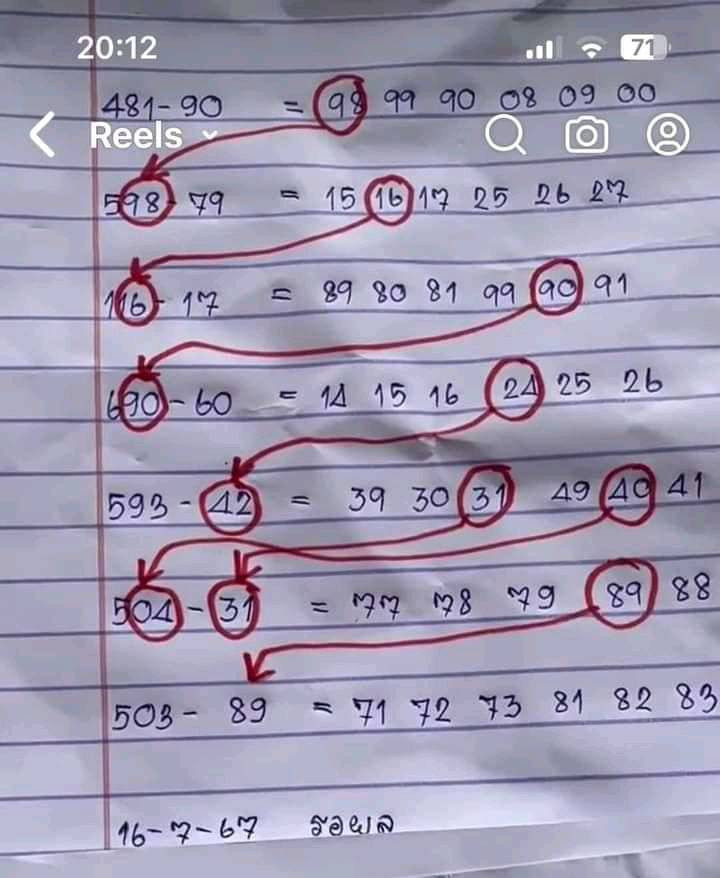 20:12 71
481-90 = 98 99 90 08 09 00
Reels
598-79 = 15 16 17 25 26 27
116-17 = 89 80 81 99 90 91
690-60 = 14 15 16 24 25 26
593-42 = 39 30 31 49 40 41
504-31 = 77 78 79 89 88
503-89 = 71 72 73 81 82 83
16-7-67 รอผล